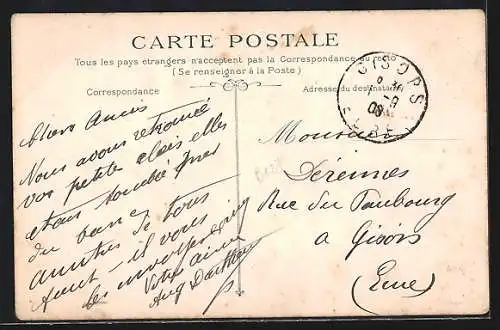 CARTE POSTALE
Tous les pays étrangers n'acceptent pas la Correspondance au recto
(Se renseigner à la Poste)
Correspondance
Adresse du destinataire
GISORS
EURE
09
Chers Amis
Nous avons retrouvé
vos petites clés elles
étais tombé près
du banc
Amitiés de tous
faut-il vous
les
Votre ami
Aug
Monsieur
Rue du Faubourg
a Gisors
(Eure)